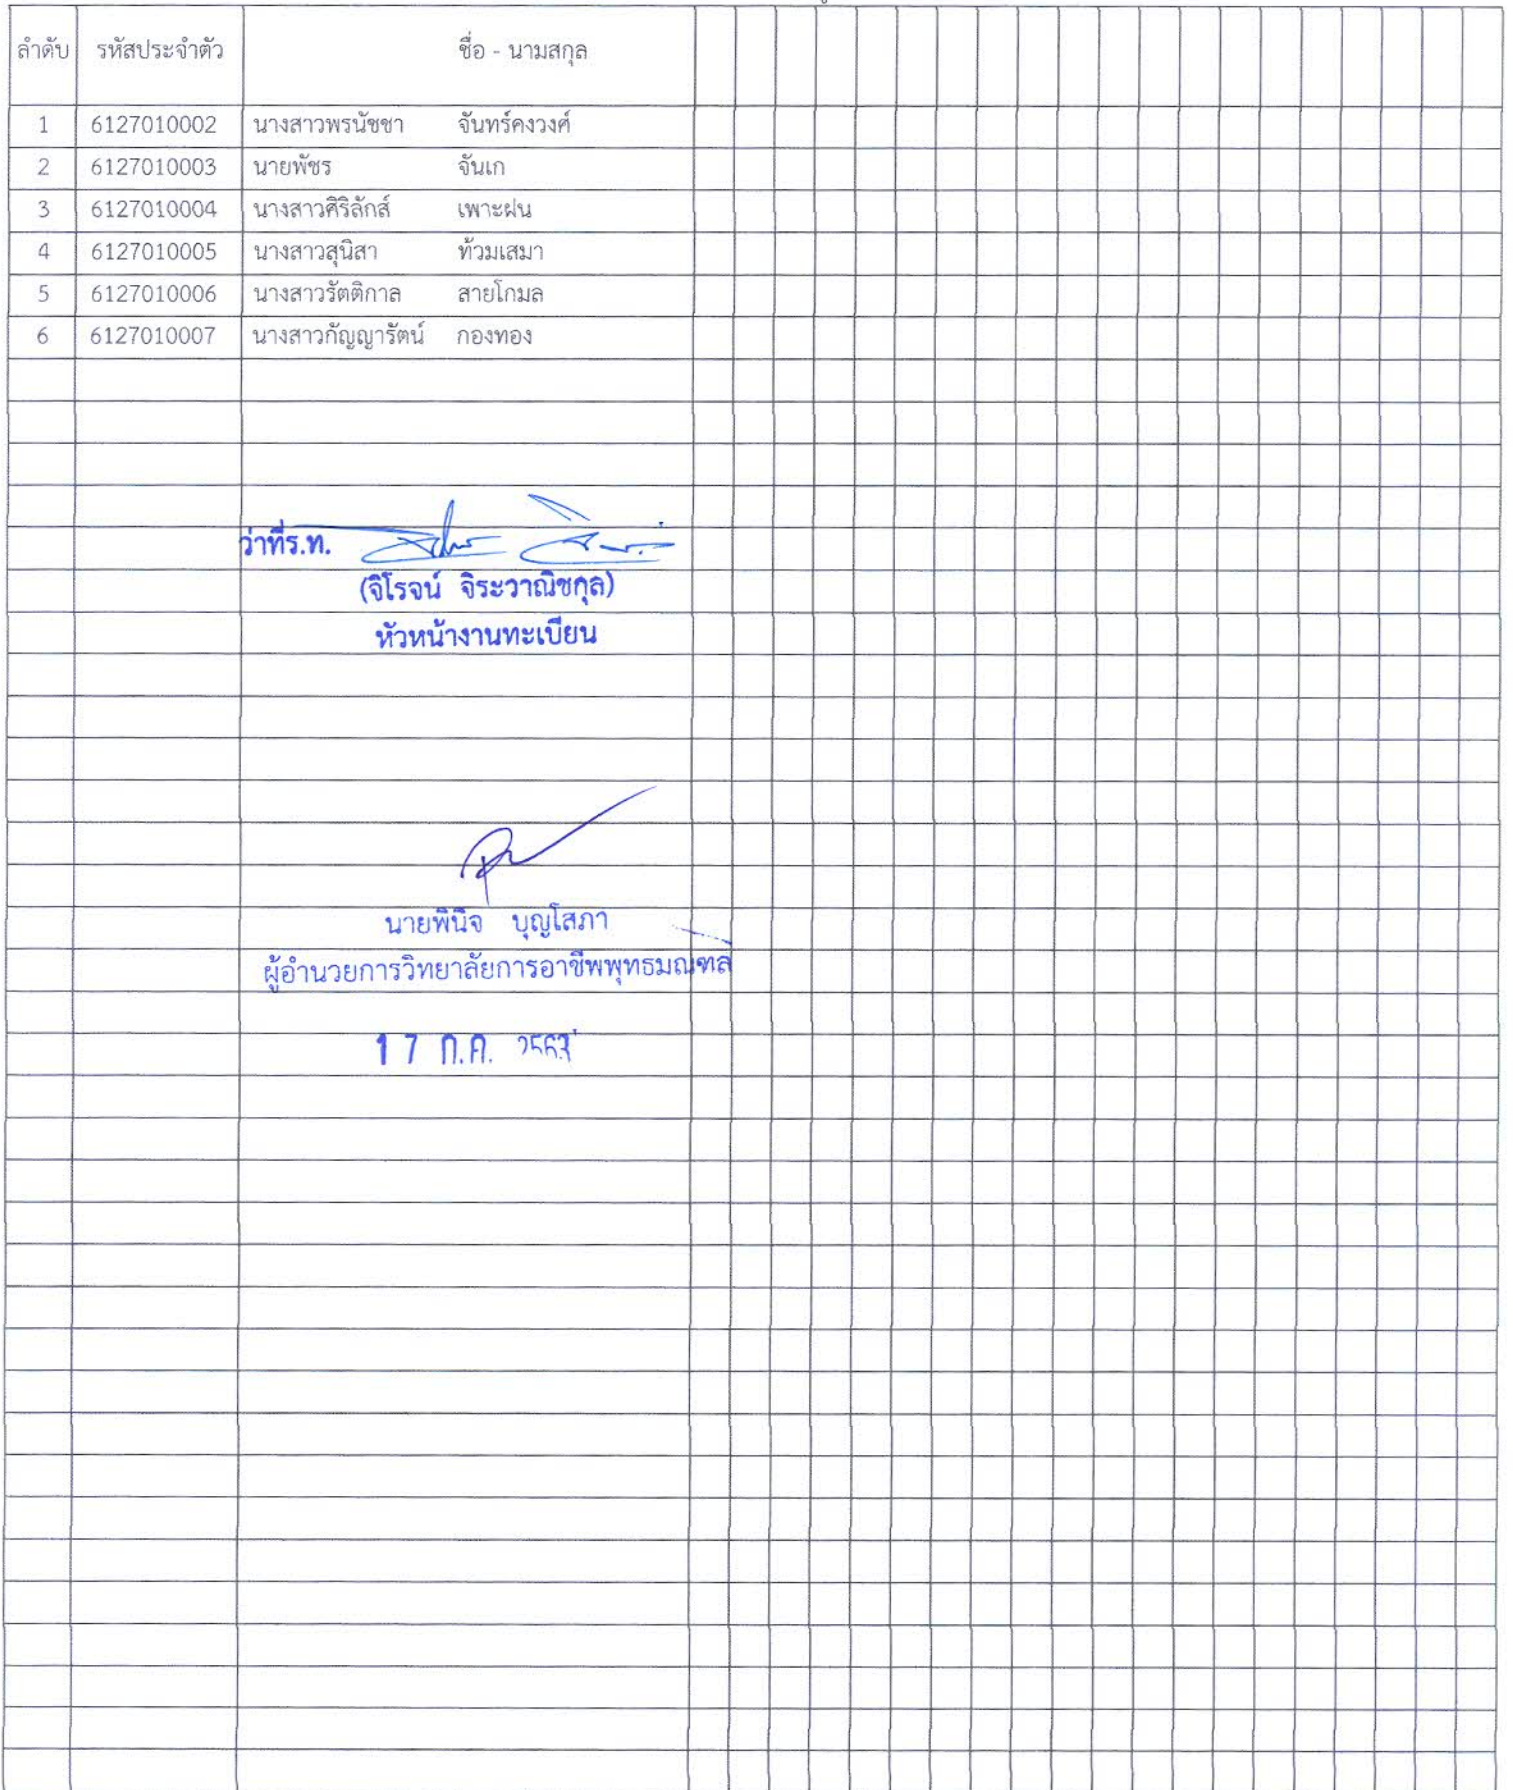 ลำดับ รหัสประจำตัว ชื่อ - นามสกุล
1 6127010002 นางสาวพรนัชชา จันทร์คงวงศ์
2 6127010003 นายพัชร จันเก
3 6127010004 นางสาวศิริลักส์ เพาะฝน
4 6127010005 นางสาวสุนิสา ท้วมเสมา
5 6127010006 นางสาวรัตติกาล สายโกมล
6 6127010007 นางสาวกัญญารัตน์ กองทอง
ว่าที่ร.ท.
(จิโรจน์ จิระวาณิชกุล)
หัวหน้างานทะเบียน
นายพินิจ บุญโสภา
ผู้อำนวยการวิทยาลัยการอาชีพพุทธมณฑล
17 ก.ค. 2563